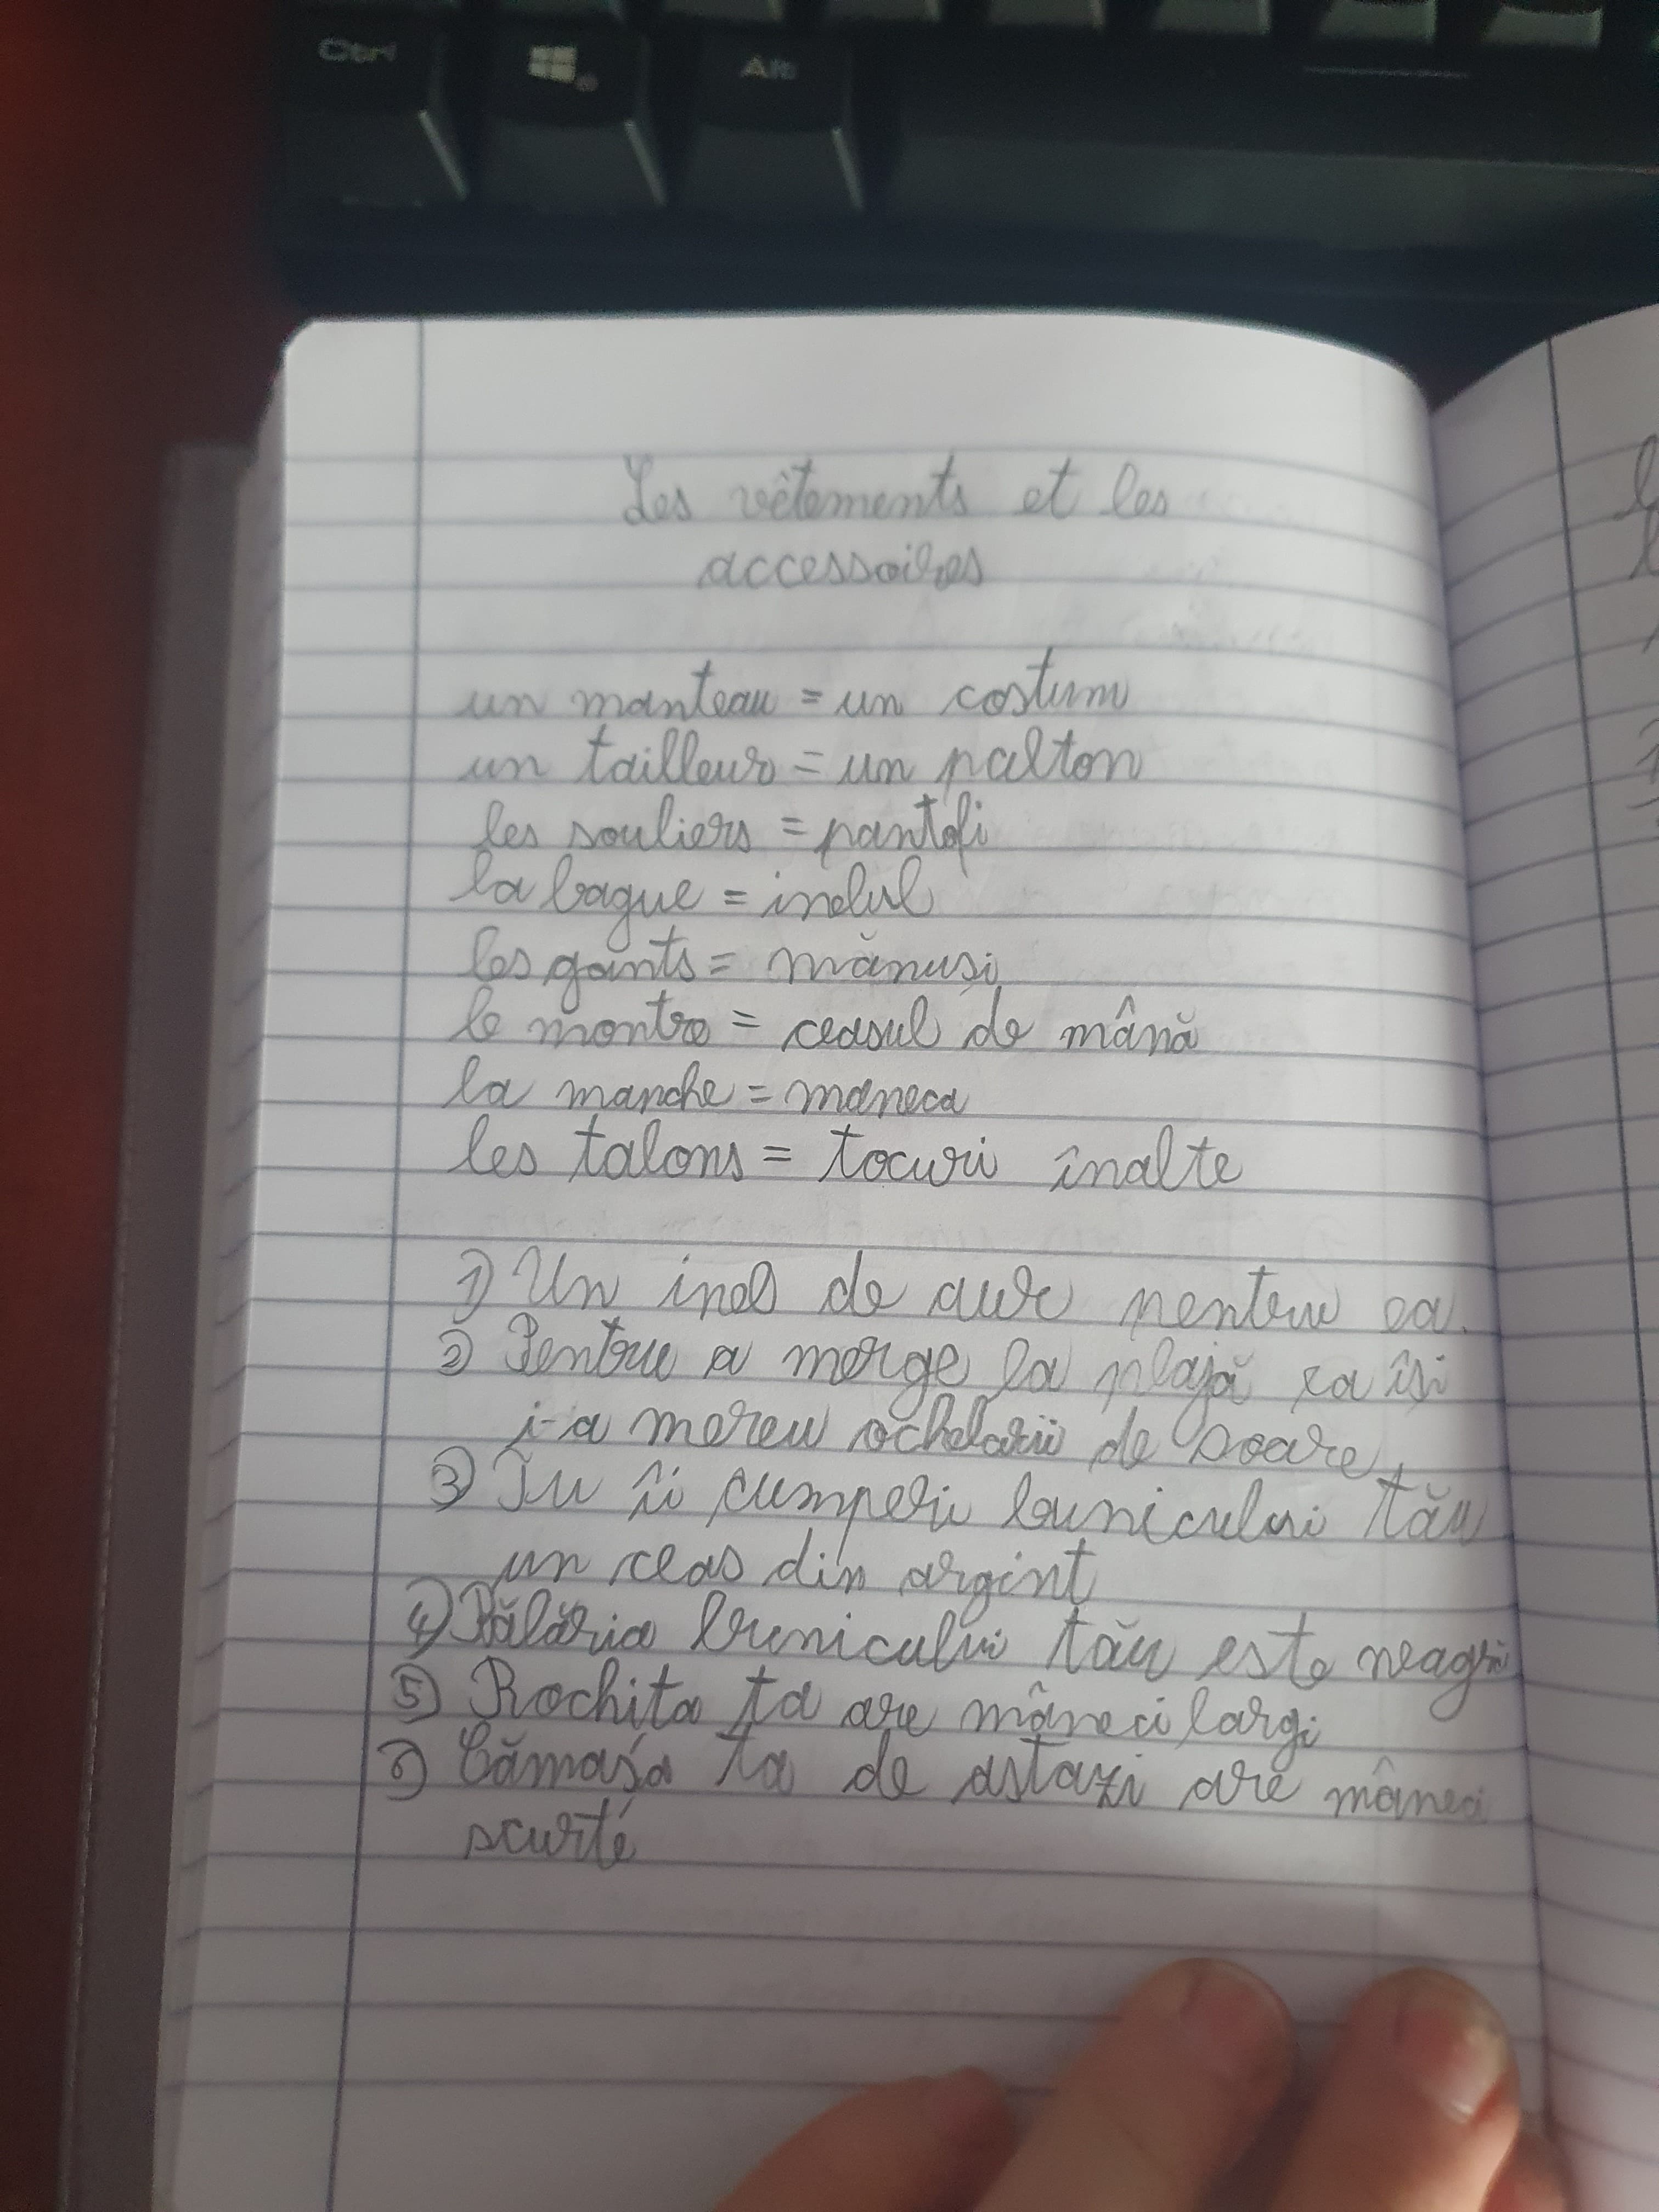 Ctrl
Alt
Les vêtements et les
accessoires
un manteau = un costum
un tailleur = un palton
les souliers = pantofi
la bague = inelul
les gants = mănuși
le montre = ceasul de mână
la manche = maneca
les talons = tocuri înalte
1) Un inel de aur pentru ea.
2) Pentru a merge la plajă ea își
i-a mereu ochelarii de soare
3) Tu îi cumperi bunicului tău
un ceas din argint
4) Pălăria bunicului tău este neagră
5) Rochita ta are mâneci largi
6) Cămașa ta de astazi are mâneci
scurte